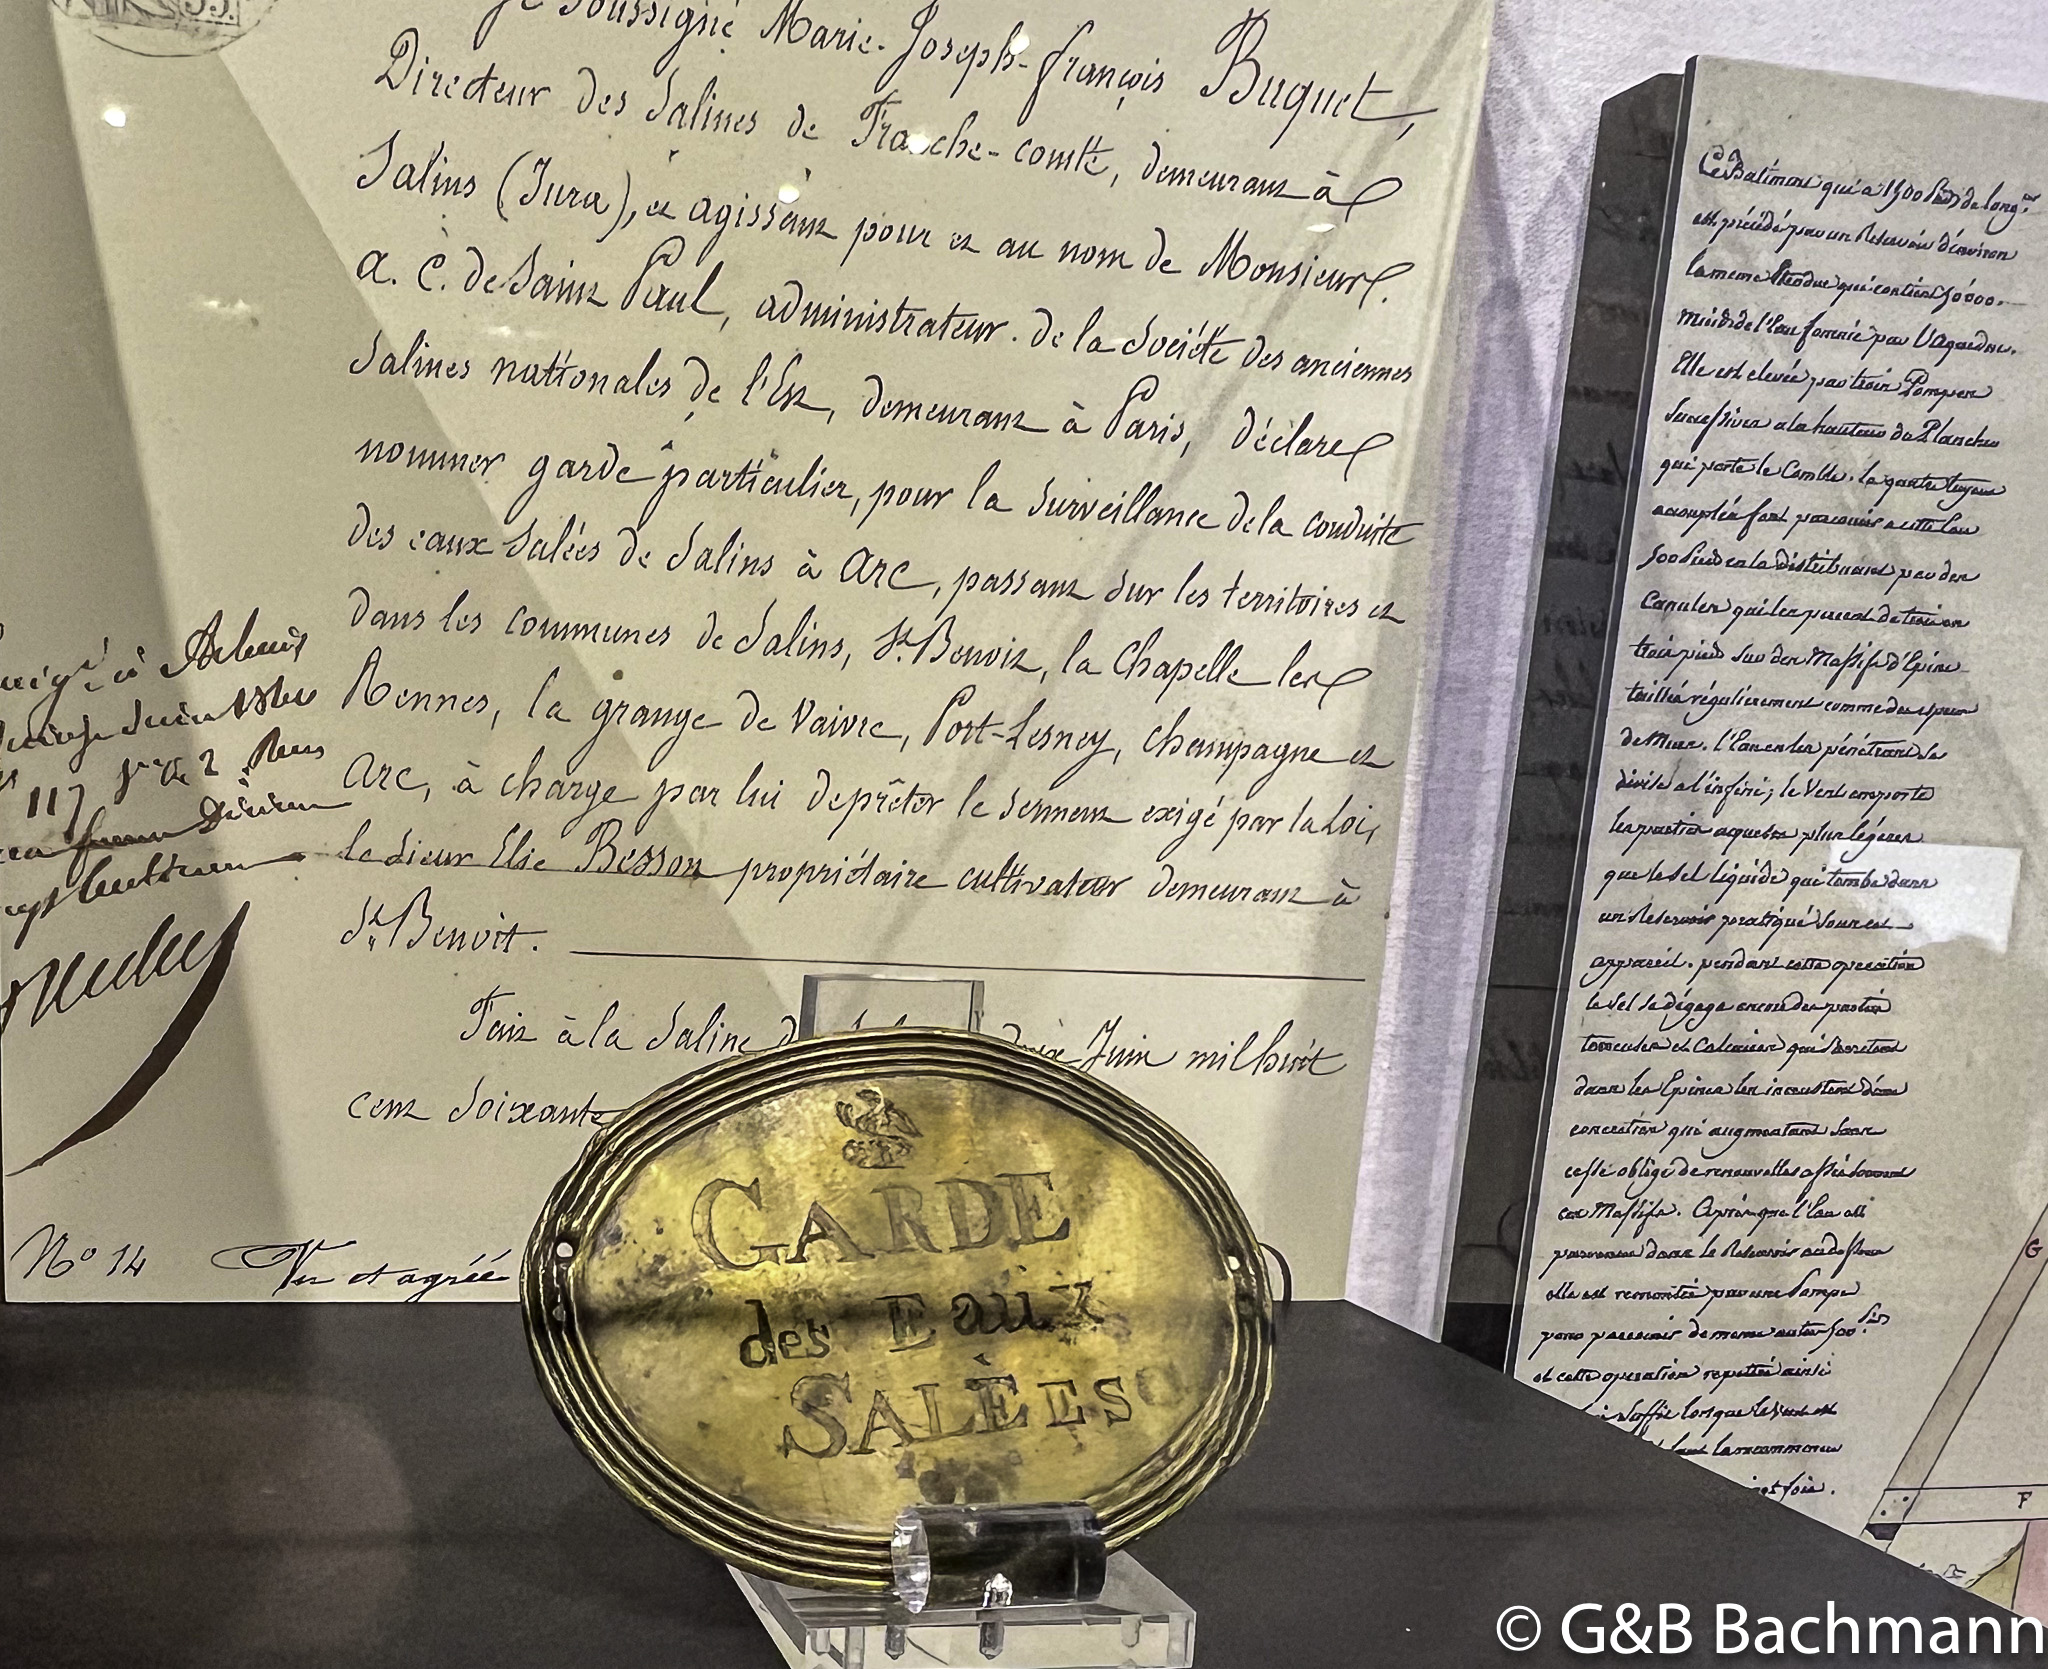 Je soussigné Marie-Joseph-françois Buquet,
Directeur des Salines de Franche-comté, demeurant à
Salins (Jura), et agissant pour et au nom de Monsieur
A. C. de Saint Paul, administrateur de la Société des anciennes
Salines nationales de l'Est, demeurant à Paris, déclare
nommer garde particulier, pour la surveillance de la conduite
des eaux salées de Salins à Arc, passant sur les territoires et
dans les communes de Salins, St. Benoit, la Chapelle les
Rennes, la grange de Vaivre, Port-Lesney, Champagne et
Arc, à charge par lui de prêter le serment exigé par la Loi,
le Sieur Elie Besson propriétaire cultivateur demeurant à
St. Benoit.
Fait à la Saline dix Juin mil huit
cent soixante
117 2
No 14 Vu et agréé
GARDE
des Eaux
SALÈES
Ce Batiment qui a 1500 Pieds de long.r
est précédé par un Reservoir d'environ
la meme Etendue qui contient 50000.
muids de l'Eau fournie par l'Aqueduc.
Elle est elevée par trois Pompes
Successives a la hauteur du Plancher
qui porte le Comble. le quatre tuyaux
acouplés font parcourir a cette Eau
500 Pieds en la distribuant par des
Canules qui les percent de trois en
trois pieds sur des Massifs d'Epine
taillés régulièrement comme des
de Murs. l'Eau en les pénétrant se
divise a l'infini; le Vent emporte
les parties aqueuses plus légères
que le Sel liquide qui tombe dans
un Reservoir pratiqué sous cet
appareil. pendant cette operation
le Sel se dégage encore des parties
terreuses et Calcaires qui s'arretent
dans les Epines les incrustent d'une
concretion qui augmentant sans
cesse oblige de renouveller assés souvent
ces Massifs. Après que l'Eau est
parvenue dans le Reservoir au dessous
elle est remontée par une Pompe
pour parcourir de meme autres 500 Pieds
et cette operation repettée ainsi
Suffit lorsque le
la recommencer
fois.
G
F
© G&B Bachmann